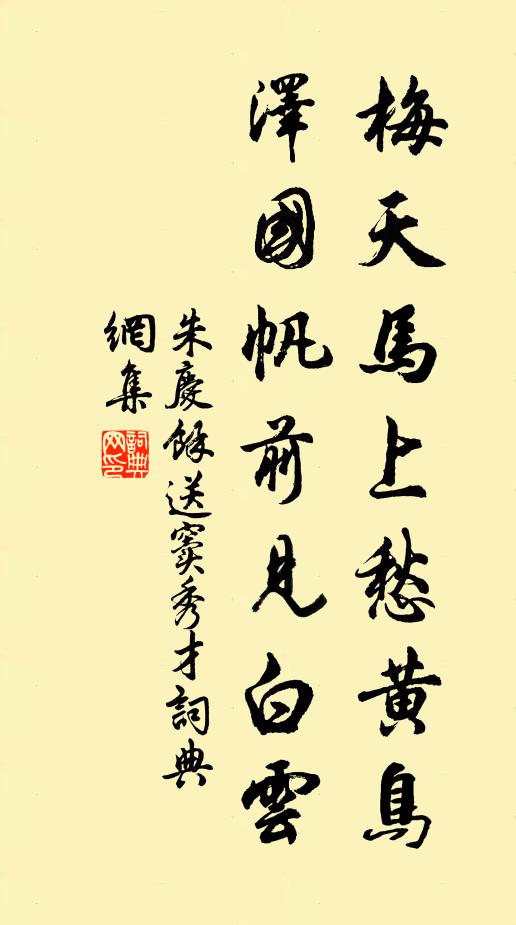 梅天馬上愁黃鳥
澤國帆前見白雲
朱慶餘送竇秀才詞典
網集
詞典網印